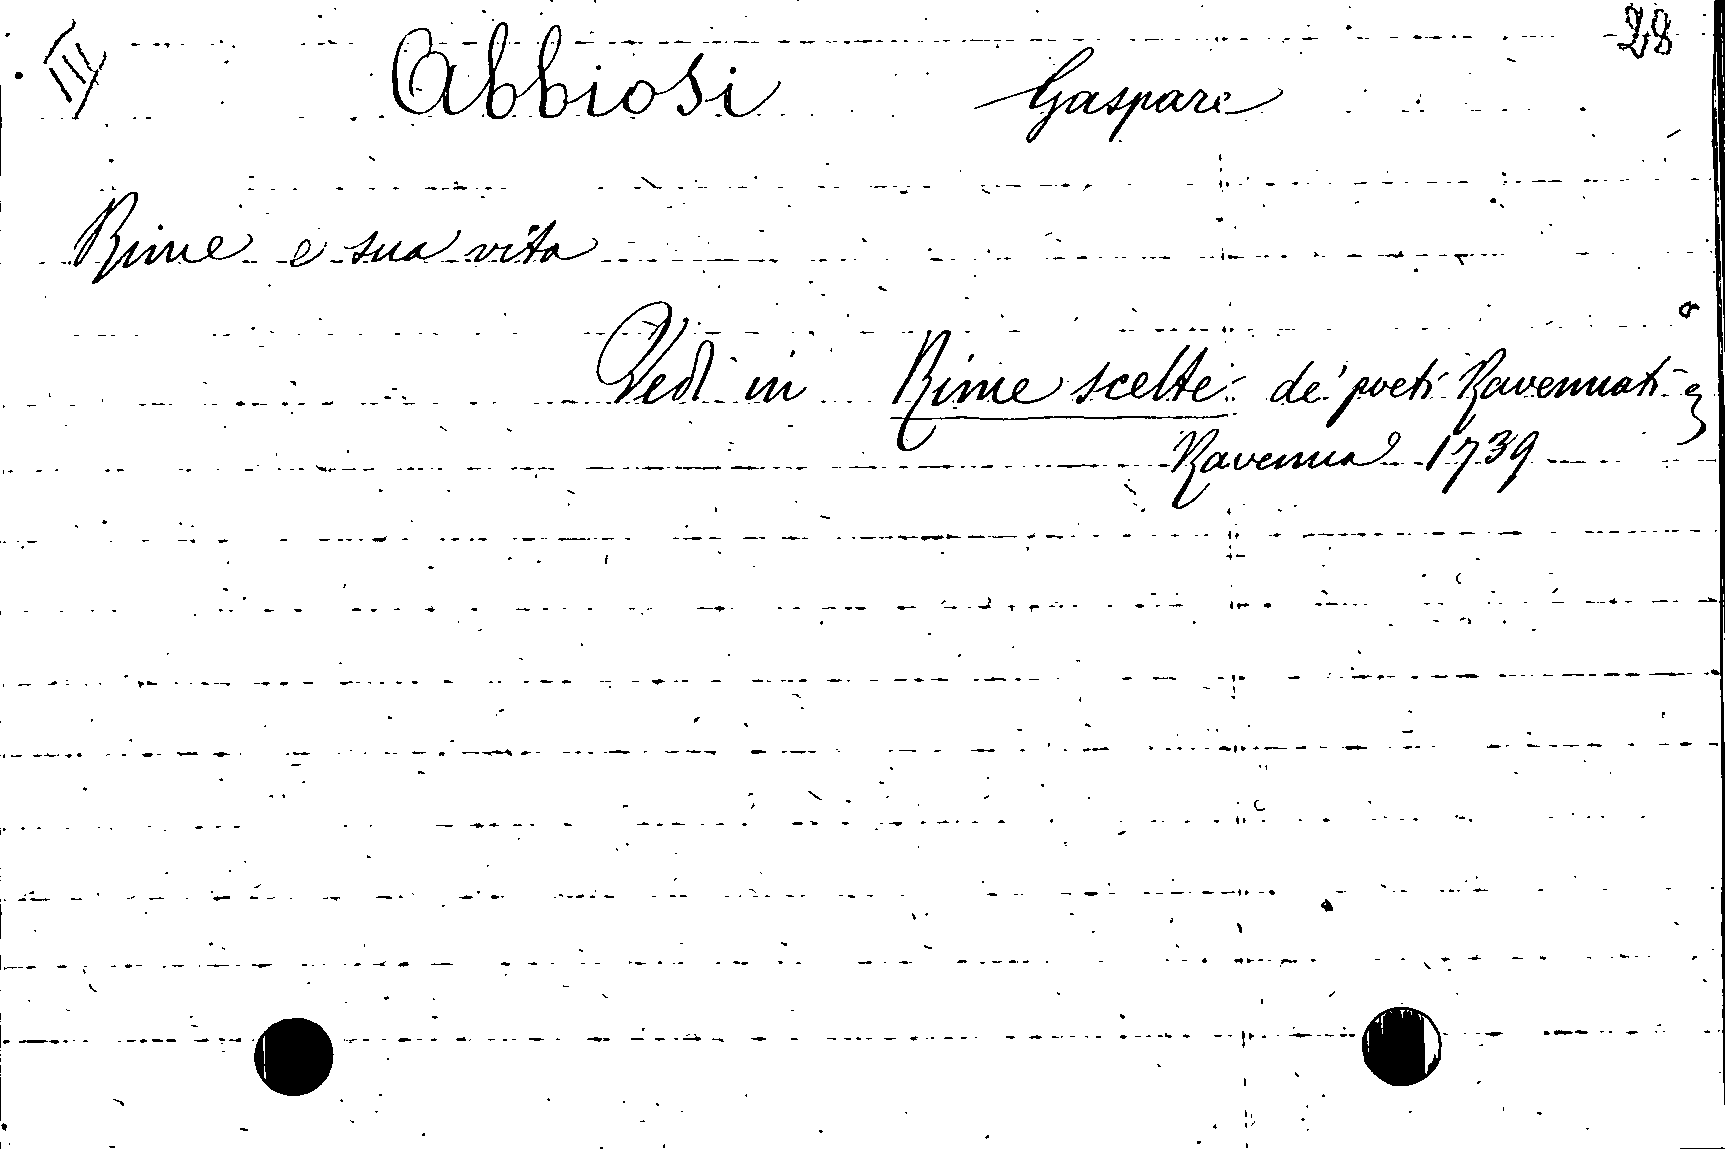 III Abbiosi Gaspare 28
Rime e sua vita
Vedi in Rime scelte de' poeti Ravennati
Ravenna 1739